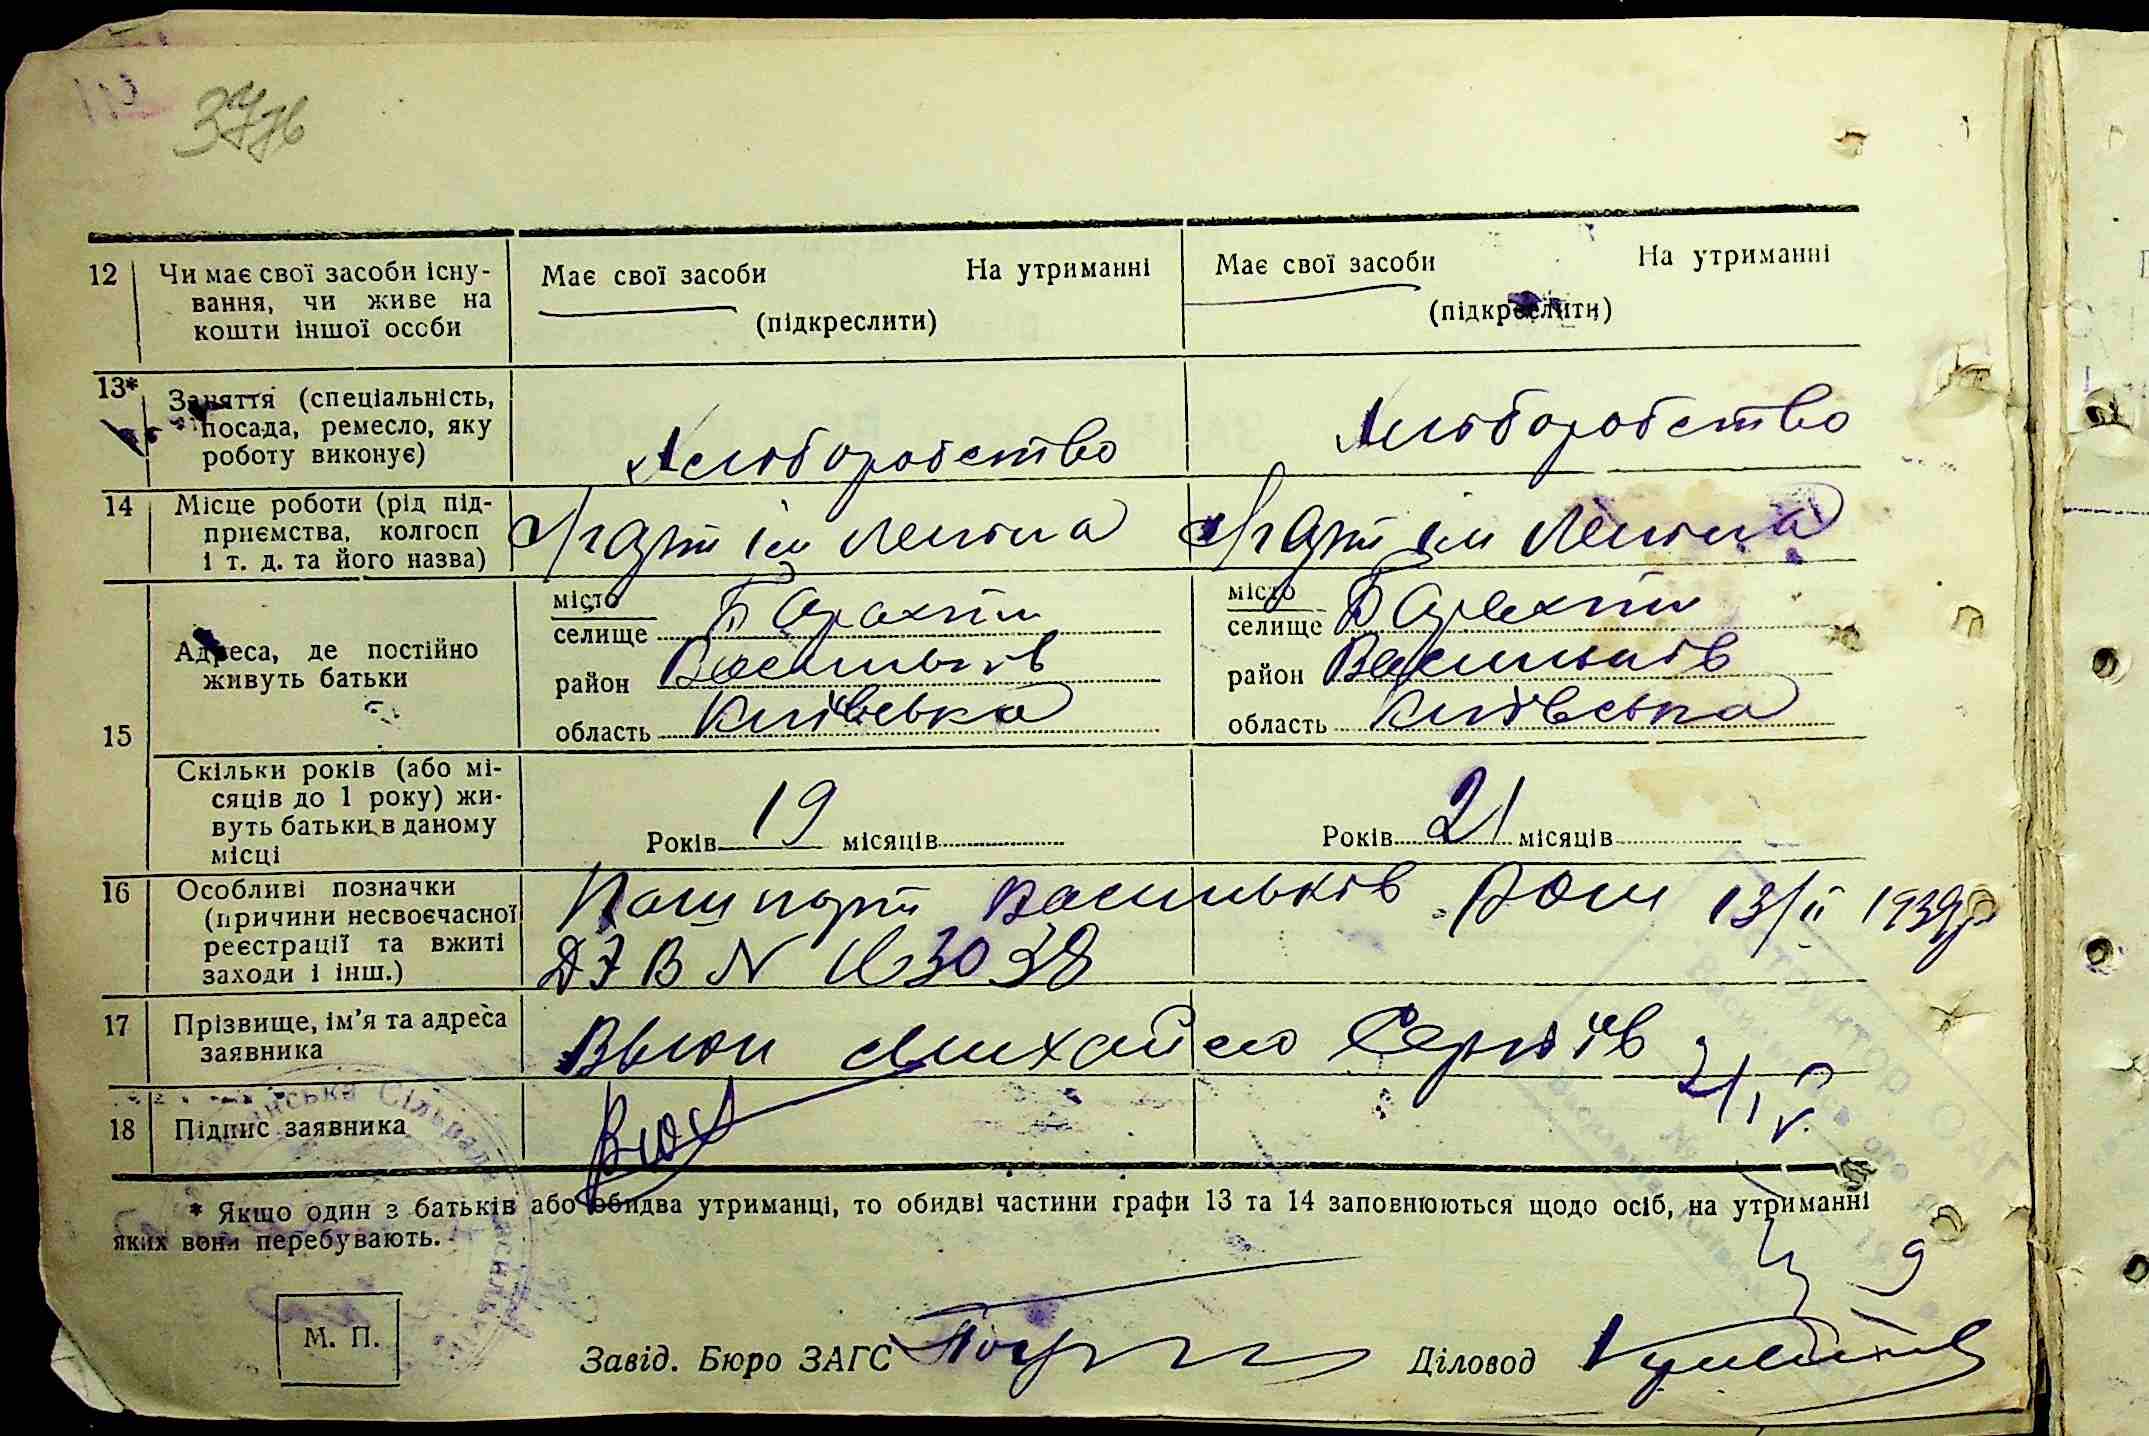 12 Чи має свої засоби існу-
вання, чи живе на
кошти іншої особи
Має свої засоби На утриманні
(підкреслити)
Має свої засоби На утриманні
(підкреслити)
13* Заняття (спеціальність,
посада, ремесло, яку
роботу виконує)
Хліборобство
Хліборобство
14 Місце роботи (рід під-
приємства, колгосп
і т. д. та його назва)
арт ім Леніна
арт ім Леніна
15
Адреса, де постійно
живуть батьки
місто
селище Барахти
район Васильків
область Київська
місто
селище Барахти
район Васильків
область Київська
Скільки років (або мі-
сяців до 1 року) жи-
вуть батьки в даному
місці
Років 19 місяців
Років 21 місяців
16 Особливі позначки
(причини несвоєчасної
реєстрації та вжиті
заходи і інш.)
Пашпорт Васильків 13/II 1939р
№
17 Прізвище, ім'я та адреса
заявника
Вьюн Михайло Сергіїв
18 Підпис заявника
* Якщо один з батьків або обидва утриманці, то обидві частини графи 13 та 14 заповнюються щодо осіб, на утриманні
яких вони перебувають.
М. П.
Завід. Бюро ЗАГС
Діловод